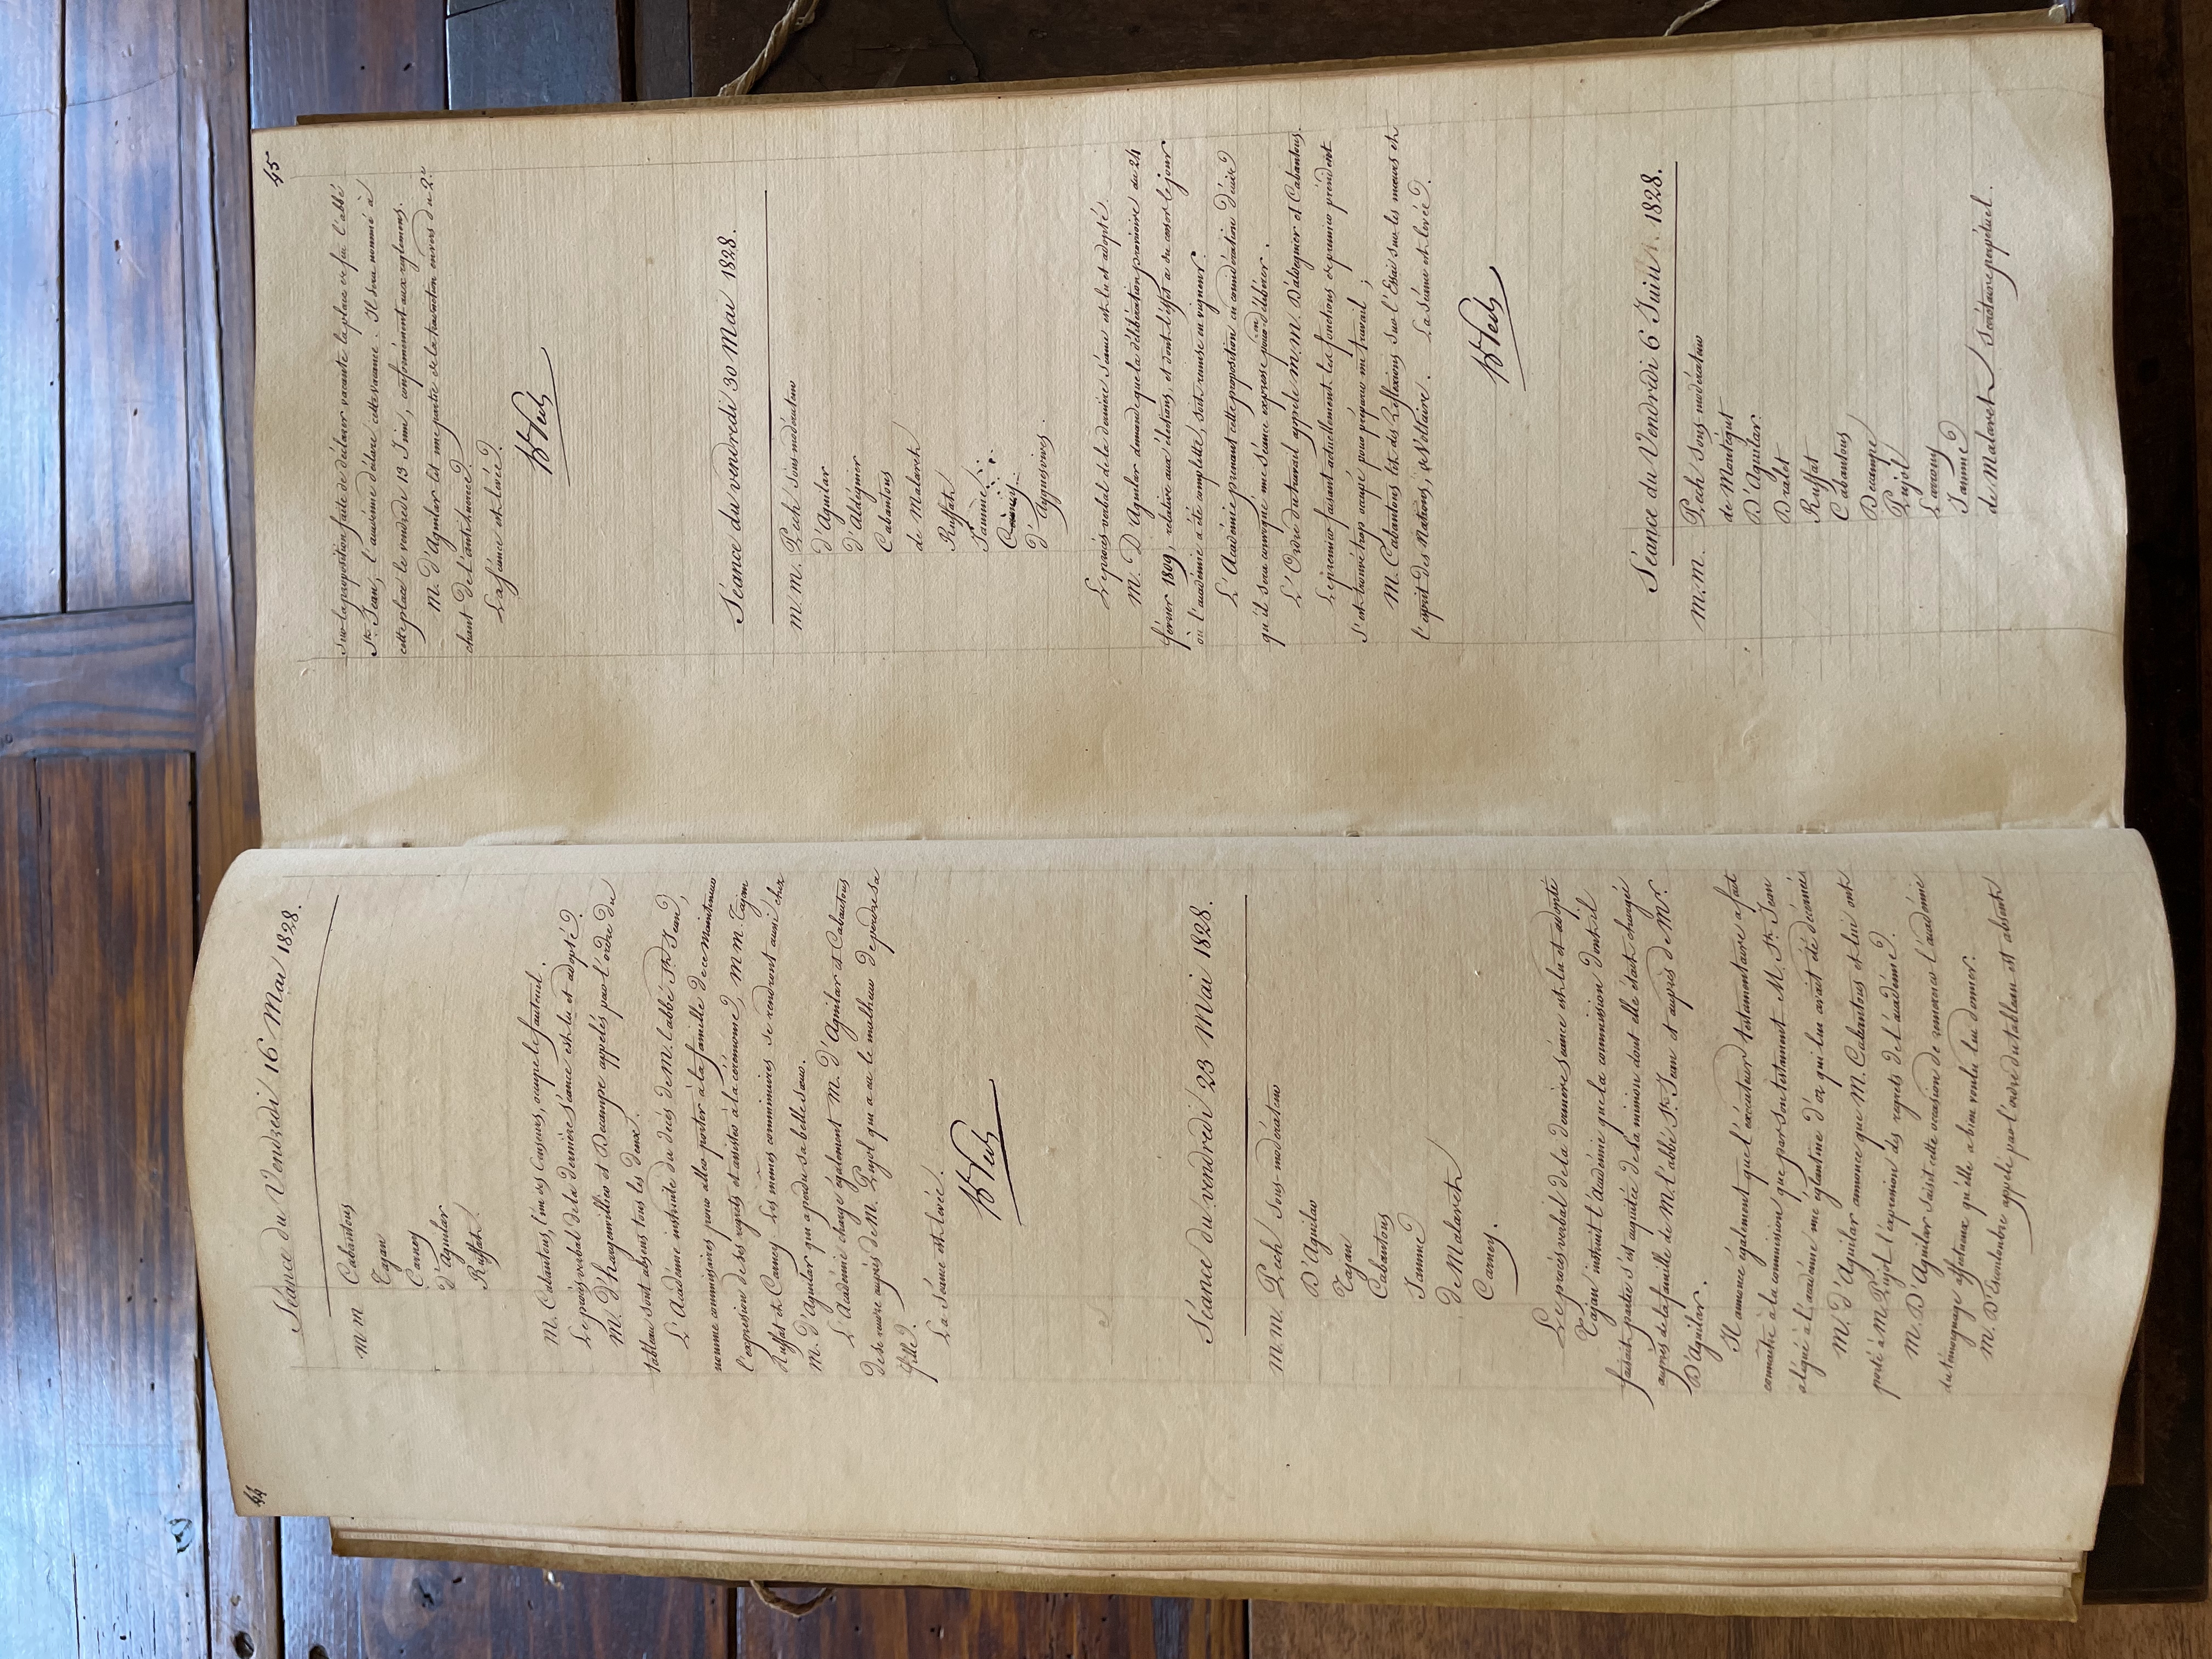 44
Séance du Vendredi 16 Mai 1828.
M M Cabantous
Tajan
Carney
d'Aguilar
Ruffat.
M. Cabantous, l'un des Censeurs, occupe le fauteuil.
Le procès verbal de la dernière séance est lu et adopté.
M. D'hargenvillier et Decampe appelés par l'ordre du
tableau sont absens tous les deux.
L'Académie instruite du décès de M. l'abbé St. Jean,
nomme commissaires pour aller porter à la famille de ce Mainteneur
l'expression de ses regrets et assister à la cérémonie, M M. Tajan
Ruffat et Carney. Les mêmes commissaires se rendront aussi chez
M. d'Aguilar qui a perdu sa belle sœur.
L'Académie charge également M. d'Aguilar et Cabantous
de se rendre auprès de M. Pujol qui a eu le malheur de perdre sa
fille.
La Séance est levée.
Pech
Séance du vendredi 23 Mai 1828.
M. M. Pech Sous-modérateur
D'Aguilar
Tajan
Cabantous
Jamme
de Malaret
Carney.
Le procès verbal de la dernière séance est lu et adopté
Tajan instruit l'Académie que la commission dont il
faisait partie s'est acquittée de sa mission dont elle était chargée
auprès de la famille de M. l'abbé St. Jean et auprès de Mr.
D'Aguilar.
Il annonce également que l'exécuteur testamentaire a fait
connaître à la commission que par son testament M. St. Jean
a légué à l'académie une églantine d'or qui lui avait été décernée
M. d'Aguilar annonce que M. Cabantous et lui ont
porté à M. Pujol l'expression des regrets de l'académie.
M. D'Aguilar saisit cette occasion de remercier l'académie
du témoignage affectueux qu'elle a bien voulu lui donner.
M. D'Escouloubre appelé par l'ordre du tableau est absent
45
Sur la proposition faite de déclarer vacante la place de feu l'abbé
St. Jean, l'académie déclare cette vacance. Il sera nommé à
cette place le vendredi 13 Juin, conformément aux réglemens.
M. d'Aguilar lit une partie de la traduction en vers du 2e.
chant de l'anti-lucrèce.
La séance est levée.
Pech
Séance du vendredi 30 Mai 1828.
M. M. Pech sous-modérateur
d'Aguilar
d'Aldéguier
Cabantous
de Malaret
Ruffat
Jamme
Carney
d'Ayguesvives.
Le procès-verbal de la dernière séance est lu et adopté.
M. D'Aguilar demande que la délibération provisoire du 24
février 1809, relative aux élections, et dont l'effet a dû cesser le jour
où l'académie a été complette, soit remise en vigueur.
L'Académie prenant cette proposition en considération décide
qu'il sera convoqué une séance expresse pour en délibérer.
L'Ordre du travail appèle M. M. D'aldéguier et Cabantous.
Le premier faisant actuellement les fonctions de premier président
s'est trouvé trop occupé pour préparer un travail ;
M. Cabantous lit des Réflexions sur l'Essai sur les mœurs et
l'esprit des Nations, de Voltaire. La Séance est levée.
Pech
Séance du Vendredi 6 Juin 1828.
M. M. Pech Sous-modérateur
de Montégut
D'Aguilar.
Dralet
Ruffat
Cabantous
Decampe
Pujol
Carney
Jamme
de Malaret Secrétaire perpétuel.